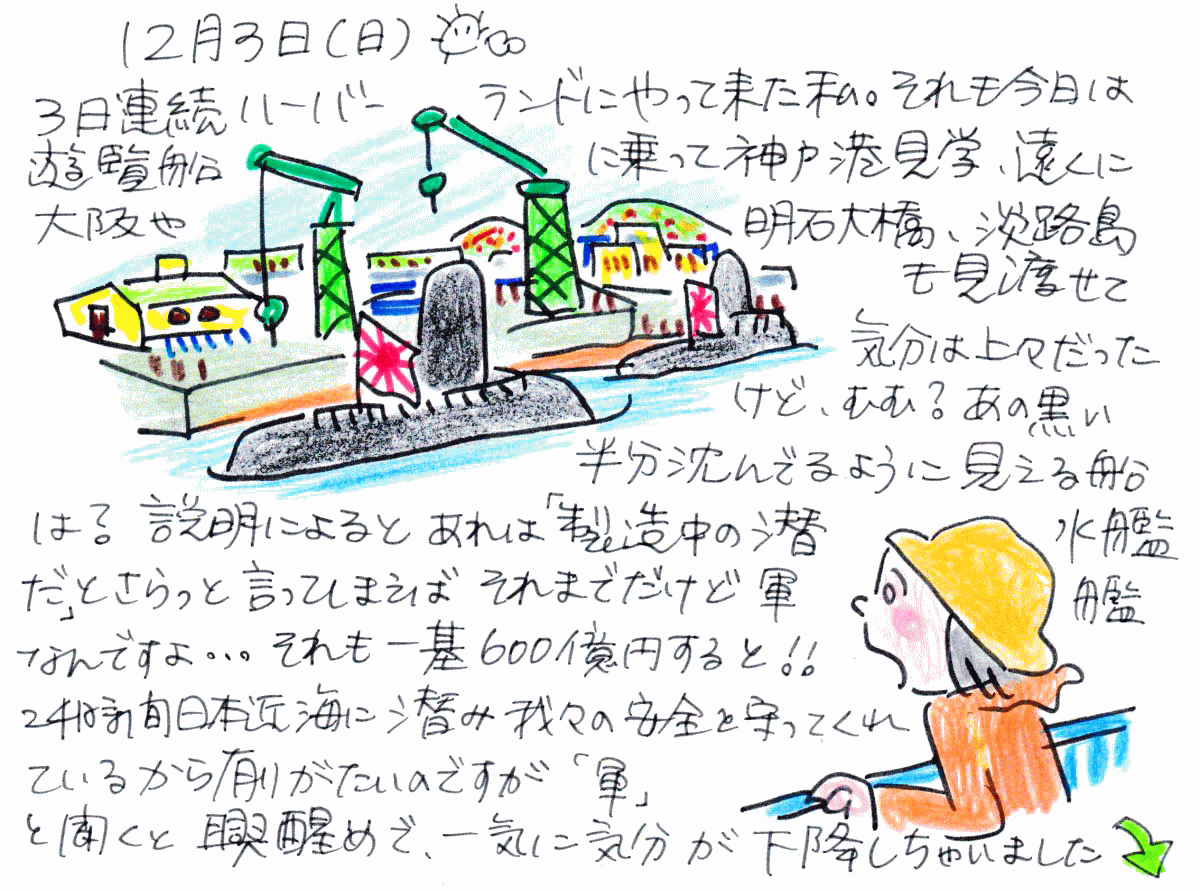 12月3日(日)
3日連続ハーバーランドにやって来た私。それも今日は
遊覧船に乗って神戸港見学、遠くに
大阪や明石大橋、淡路島
も見渡せて
気分は上々だった
けど、むむ?あの黒い
半分沈んでるように見える船
は?説明によるとあれは「製造中の潜水艦
だ」とさらっと言ってしまえばそれまでだけど軍艦
なんですよ・・・それも一基600億円すると!!
24時間日本近海に潜み我々の安全を守ってくれ
ているから有りがたいのですが「軍」
と聞くと興醒めで、一気に気分が下降しちゃいました